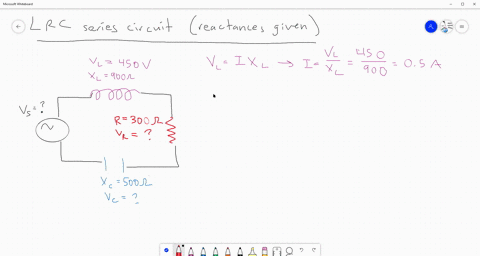 Microsoft Whiteboard
LRC series circuit (reactances given)
V_L = 450V
X_L = 900Ω
V_L = I X_L → I = V_L / X_L = 450 / 900 = 0.5 A
V_S = ?
R = 300Ω
V_R = ?
X_C = 500Ω
V_C = ?